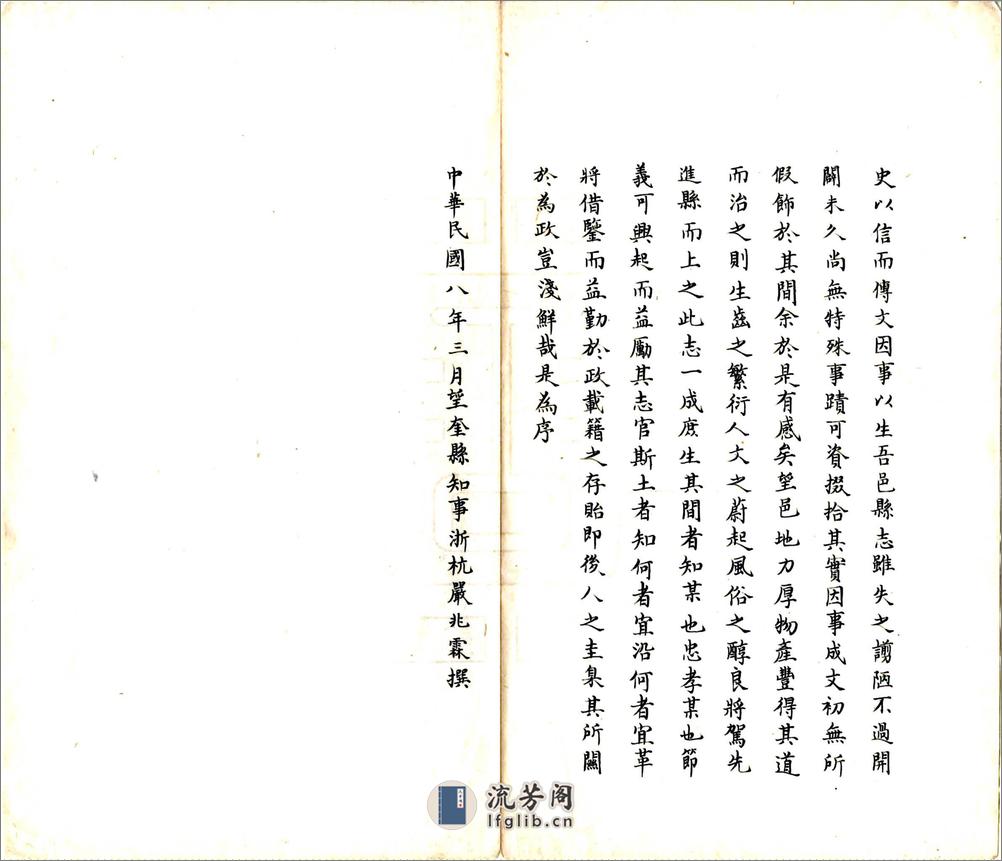 史以信而傳文因事以生吾邑縣志雖失之謭陋不過開
闢未久尚無特殊事蹟可資掇拾其實因事成文初無所
假飾於其間余於是有感矣望邑地力厚物產豐得其道
而治之則生齒之繁衍人文之蔚起風俗之醇良將駕先
進縣而上之此志一成庶生其間者知某也忠孝某也節
義可興起而益勵其志官斯土者知何者宜沿何者宜革
將借鑒而益勤於政載籍之存貽即後人之圭臬其所關
於為政豈淺鮮哉是為序
中華民國八年三月望奎縣知事浙杭嚴兆霖撰
流芳阁
lfglib.cn